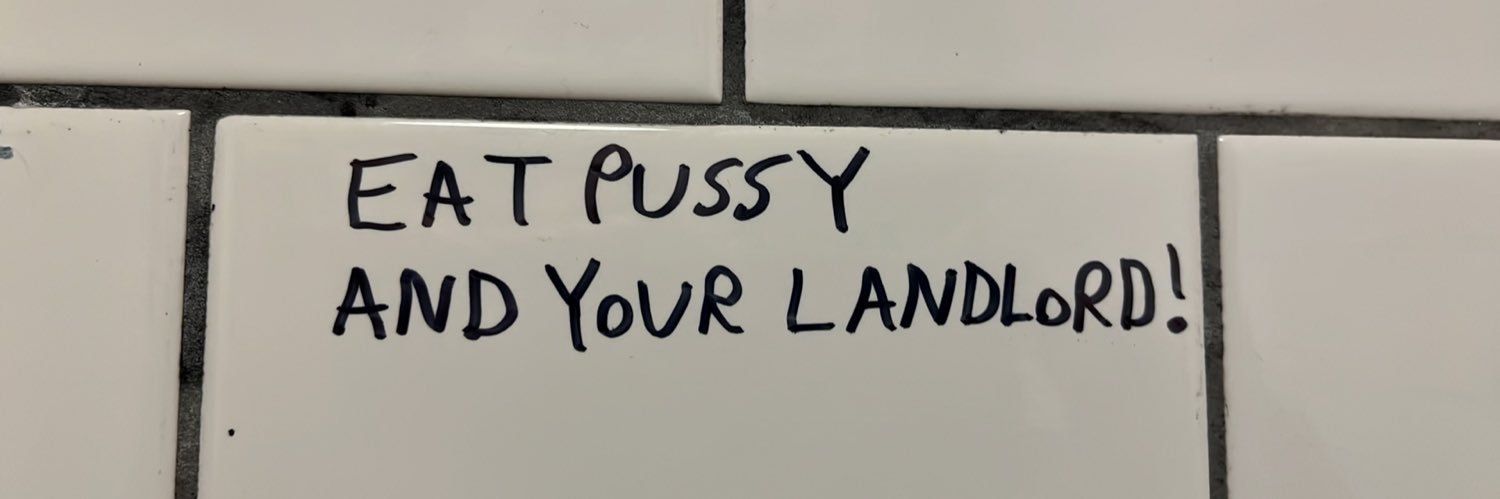 EAT PUSSY
AND YOUR LANDLORD!